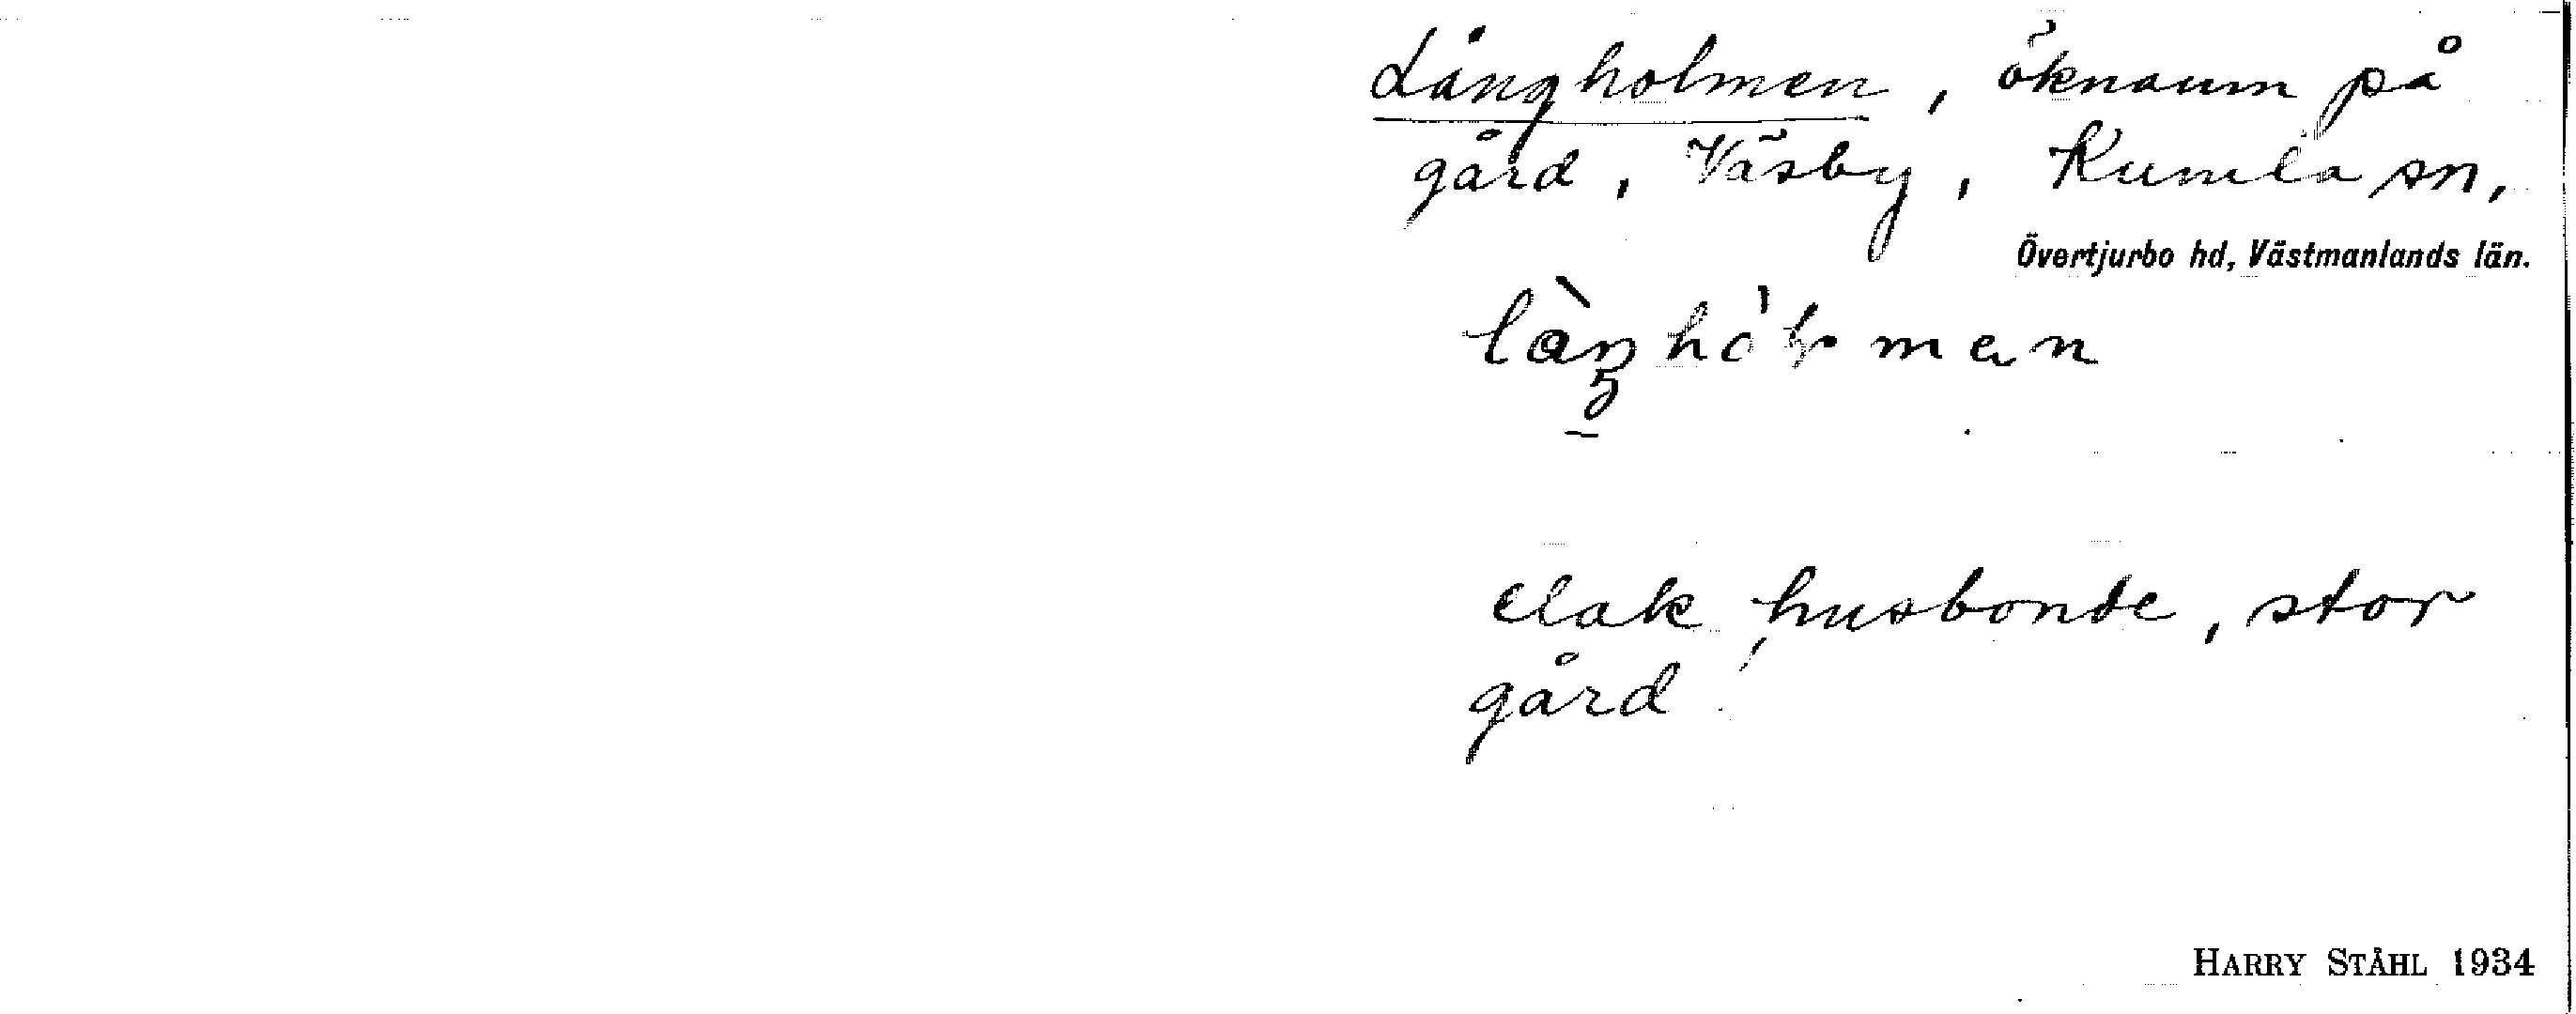 Långholmen, öknamn på
gård, Väsby, Kumla sn,
Övertjurbo hd, Västmanlands län.
elak husbonde, stor
gård.
HARRY STÅHL 1934